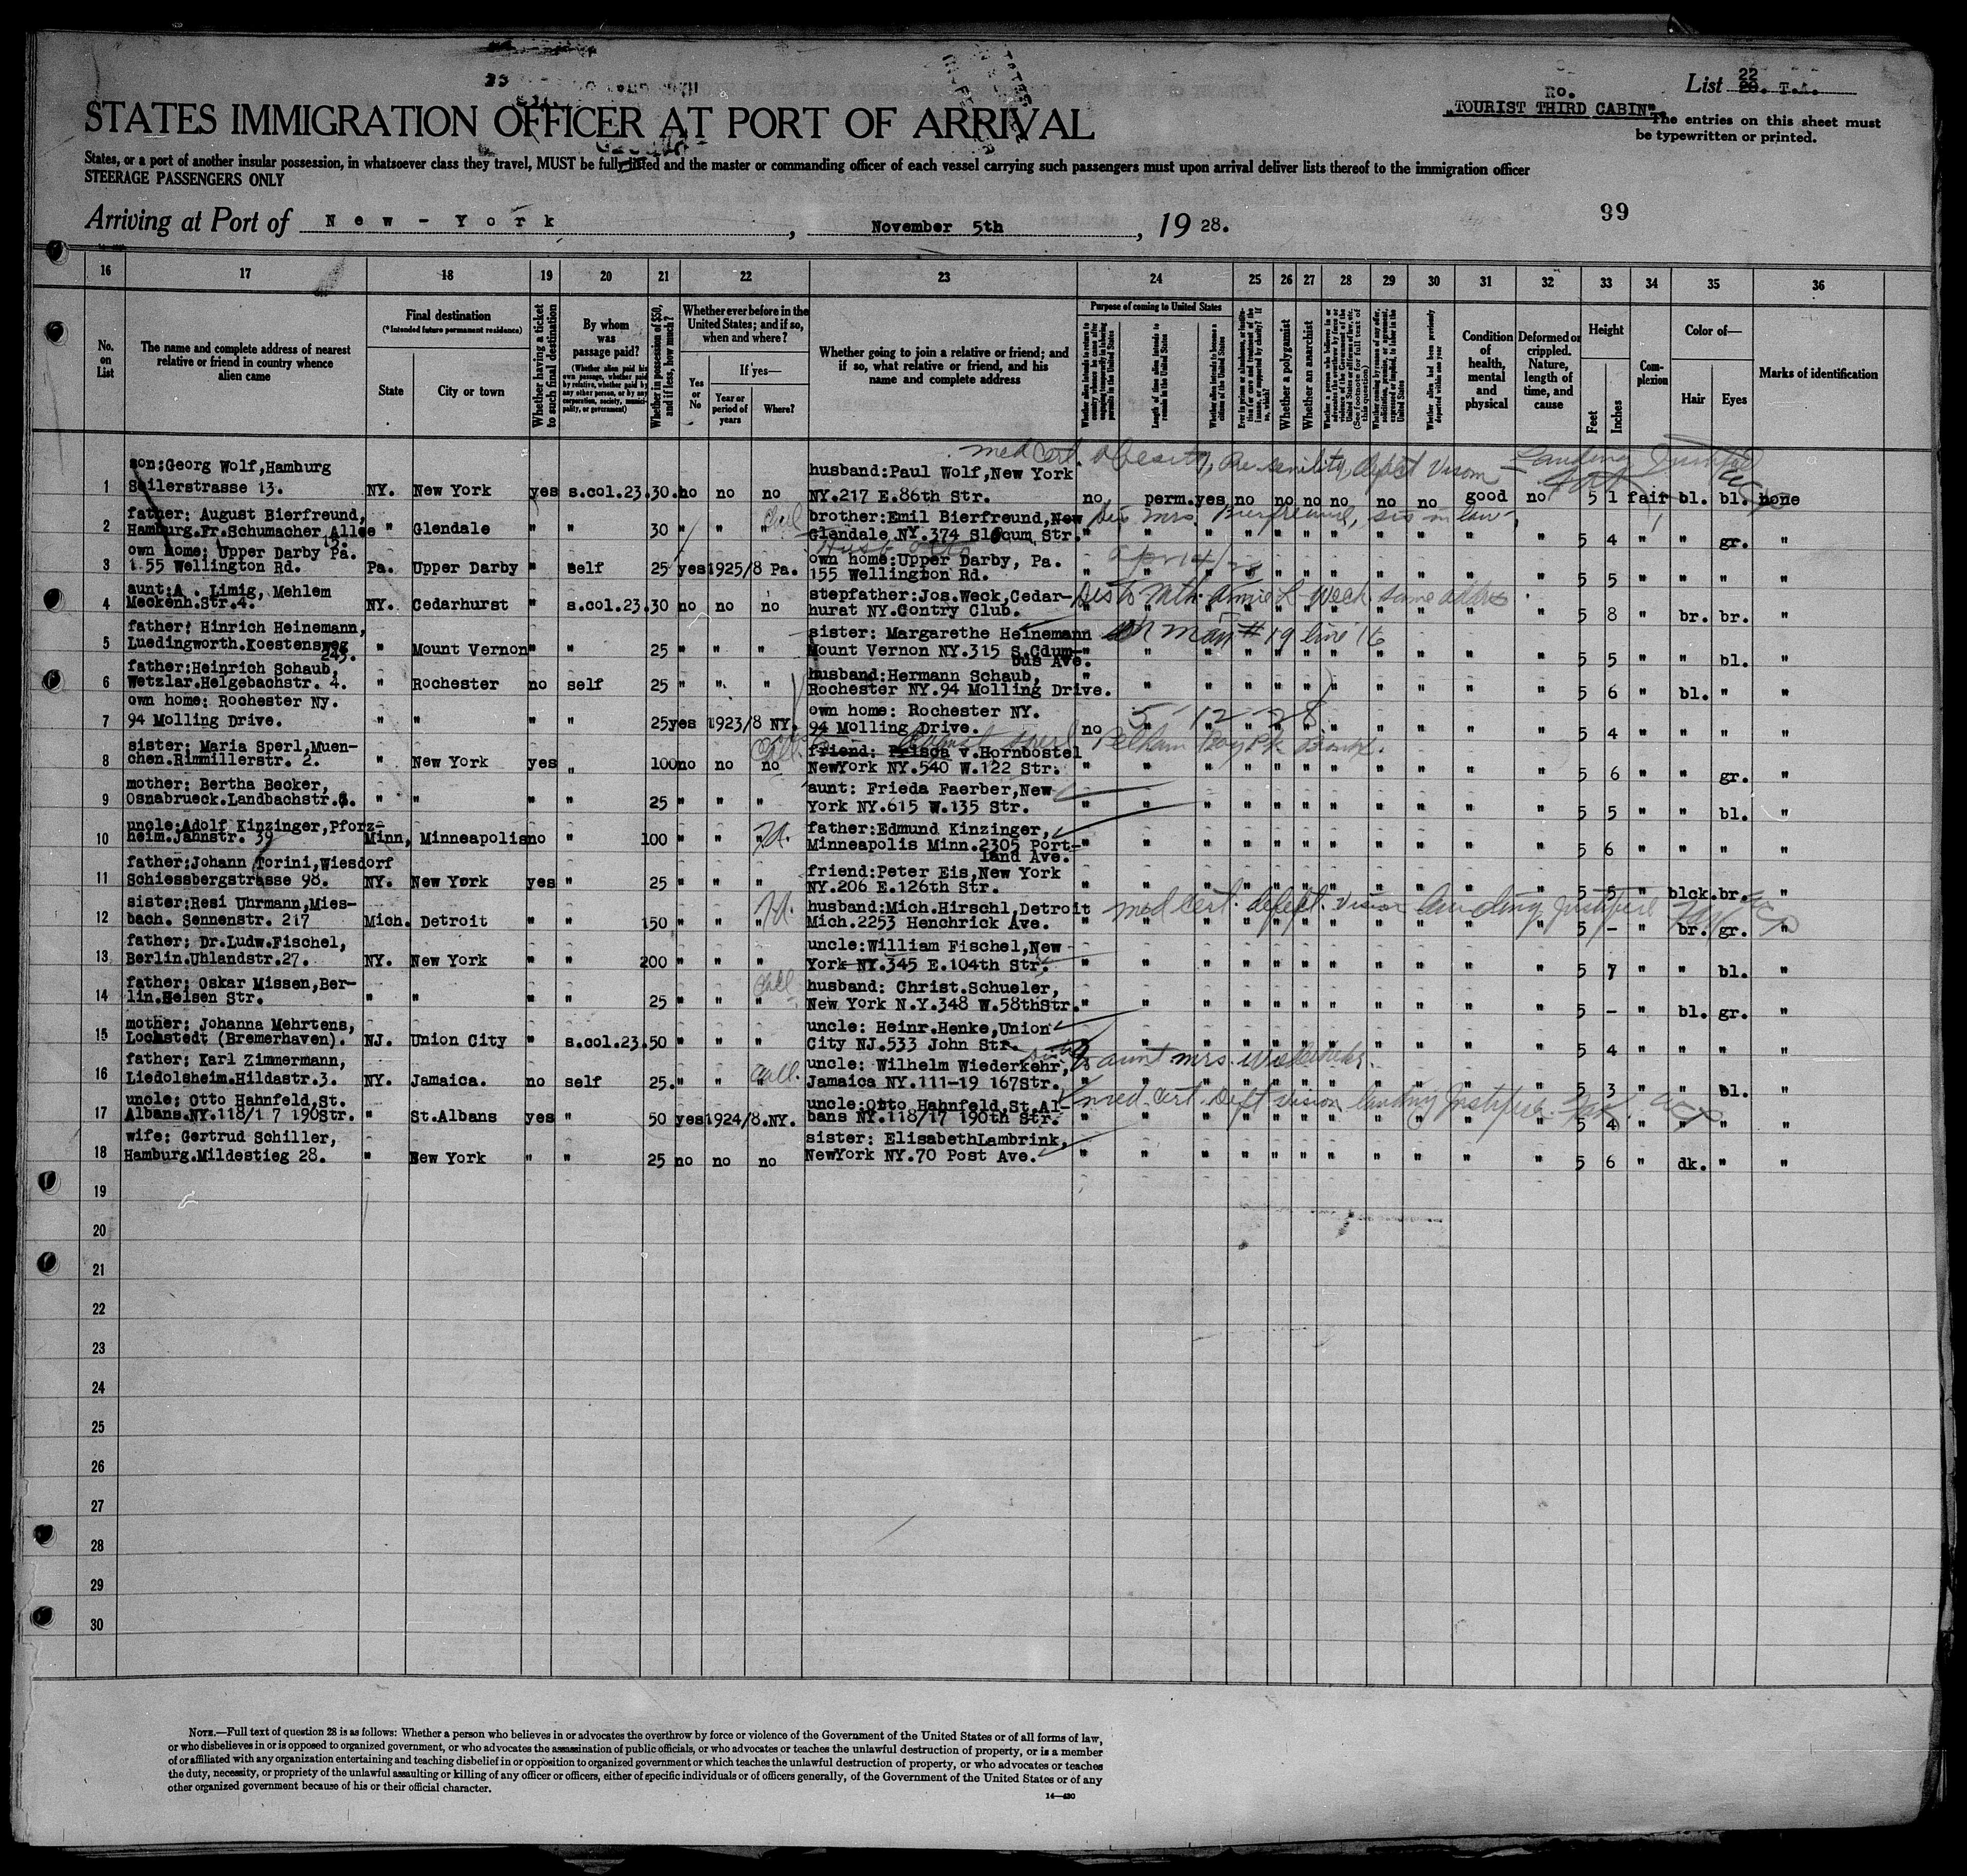 List 22 T.A.
No.
"TOURIST THIRD CABIN"
The entries on this sheet must
be typewritten or printed.
STATES IMMIGRATION OFFICER AT PORT OF ARRIVAL
States, or a port of another insular possession, in whatsoever class they travel, MUST be fully listed and the master or commanding officer of each vessel carrying such passengers must upon arrival deliver lists thereof to the immigration officer
STEERAGE PASSENGERS ONLY
99
Arriving at Port of New-York, November 5th, 1928.
16 17 18 19 20 21 22 23 24 25 26 27 28 29 30 31 32 33 34 35 36
No. on List
The name and complete address of nearest relative or friend in country whence alien came
Final destination
(*Intended future permanent residence)
State
City or town
Whether having a ticket to such final destination
By whom was passage paid?
(Whether alien paid his own passage, whether paid by relative, whether paid by any other person, or by any corporation, society, municipality, or government)
Whether in possession of $50, and if less, how much?
Whether ever before in the United States; and if so, when and where?
Yes or No
If yes—
Year or period of years
Where?
Whether going to join a relative or friend; and if so, what relative or friend, and his name and complete address
Purpose of coming to United States
Length of time alien intends to remain in the United States
Whether alien intends to become a citizen of the United States
Whether a polygamist
Whether an anarchist
Whether alien had been previously deported within one year
Condition of health, mental and physical
Deformed or crippled. Nature, length of time, and cause
Height
Feet
Inches
Complexion
Color of—
Hair
Eyes
Marks of identification
med cert obesity, defect Vision Landing
son:Georg Wolf,Hamburg husband:Paul Wolf,New York
1 Seilerstrasse 13. NY. New York yes s.col.23. 30. no no no NY.217 E.86th Str. no perm. yes no no no no no no good no 5 1 fair bl. bl. none
father: August Bierfreund, brother:Emil Bierfreund,New
2 Hamburg.Fr.Schumacher Allee 15. " Glendale " " 30 " " " Glendale NY.374 Slocum Str. " " " " " " " " " " " 5 4 " " gr. "
own home: Upper Darby Pa. own home:Upper Darby, Pa.
3 155 Wellington Rd. Pa. Upper Darby " self 25 yes 1925/8 Pa. 155 Wellington Rd. " " " " " " " " " " " 5 5 " " " "
aunt:A. Limig, Mehlem stepfather:Jos.Weck,Cedar-
4 Meckenh.Str.4. NY. Cedarhurst " s.col.23. 30 no no no hurst NY.Contry Club. " " " " " " " " " " " 5 8 " br. br. "
father: Hinrich Heinemann, sister: Margarethe Heinemann
5 Luedingworth.Koestensweg 243. " Mount Vernon " " 25 " " " Mount Vernon NY.315 S.Colum-bus Ave. " " " " " " " " " " " 5 5 " " bl. "
father:Heinrich Schaub, husband:Hermann Schaub,
6 Wetzlar.Helgebachstr. 4. " Rochester no self 25 " " " Rochester NY.94 Molling Drive. " " " " " " " " " " " 5 6 " bl. " "
own home: Rochester Ny. own home: Rochester NY. 5-12-28
7 94 Molling Drive. " " " " 25 yes 1923/8 NY. 94 Molling Drive. no " " " " " " " " " " 5 4 " " " "
sister: Maria Sperl,Muen- friend: v.Hornbostel Pelham Bay Pk
8 chen.Rimmillerstr. 2. " New York yes " 100 no no no NewYork NY.540 W.122 Str. " " " " " " " " " " " 5 6 " " gr. "
mother: Bertha Becker, aunt: Frieda Faerber,New
9 Osnabrueck.Landbachstr.6. " " " " 25 " " " York NY.615 W.135 Str. " " " " " " " " " " " 5 5 " " bl. "
uncle:Adolf Kinzinger,Pforz- father:Edmund Kinzinger,
10 heim.Jahnstr. 39 Minn, Minneapolis no " 100 " " " Minneapolis Minn.2305 Port-land Ave. " " " " " " " " " " " 5 6 " " " "
father:Johann Torini,Wiesdorf friend:Peter Eis,New York
11 Schiessbergstrasse 98. NY. New York yes " 25 " " " NY.206 E.126th Str. " " " " " " " " " " " 5 5 " blck. br. "
sister:Resi Uhrmann,Mies- husband:Mich.Hirschl,Detroit med cert. defect. vision landing justified
12 bach. Sennenstr. 217 Mich. Detroit " " 150 " " " Mich.2253 Henchrick Ave. " " " " " " " " " " " 5 - " br. gr. "
father: Dr.Ludw.Fischel, uncle:William Fischel,New
13 Berlin.Uhlandstr.27. NY. New York " " 200 " " " York NY.345 E.104th Str. " " " " " " " " " " " 5 7 " " bl. "
father: Oskar Missen,Ber- husband: Christ.Schueler,
14 lin.Helsen Str. " " " " 25 " " " New York N.Y.348 W.58thStr. " " " " " " " " " " " 5 - " bl. gr. "
mother: Johanna Mehrtens, uncle: Heinr.Henke,Union
15 Lochstedt (Bremerhaven). NJ. Union City " s.col.23. 50 " " " City NJ.533 John Str. " " " " " " " " " " " 5 4 " " " "
father: Karl Zimmermann, uncle: Wilhelm Wiederkehr, to aunt mrs. Wiederkehr.
16 Liedolsheim.Hildastr.3. NY. Jamaica. no self 25. " " " Jamaica NY.111-19 167Str. " " " " " " " " " " " 5 3 " " bl. "
uncle: Otto Hahnfeld,St. uncle:Otto Hahnfeld,St.Al- med. cert. Deft vision landing justified.
17 Albans.NY.118/17 190Str. " St.Albans yes " 50 yes 1924/8.NY. bans NY.118/17 190th Str. " " " " " " " " " " " 5 4 " " " "
wife: Gertrud Schiller, sister: ElisabethLambrink,
18 Hamburg.Mildestieg 28. " New York " " 25 no no no NewYork NY.70 Post Ave. " " " " " " " " " " " 5 6 " dk. " "
19
20
21
22
23
24
25
26
27
28
29
30
NOTE.—Full text of question 28 is as follows: Whether a person who believes in or advocates the overthrow by force or violence of the Government of the United States or of all forms of law,
or who disbelieves in or is opposed to organized government, or who advocates the assassination of public officials, or who advocates or teaches the unlawful destruction of property, or is a member
of or affiliated with any organization entertaining and teaching disbelief in or opposition to organized government or which teaches the unlawful destruction of property, or who advocates or teaches
the duty, necessity, or propriety of the unlawful assaulting or killing of any officer or officers, either of specific individuals or of officers generally, of the Government of the United States or of any
other organized government because of his or their official character.
14—430